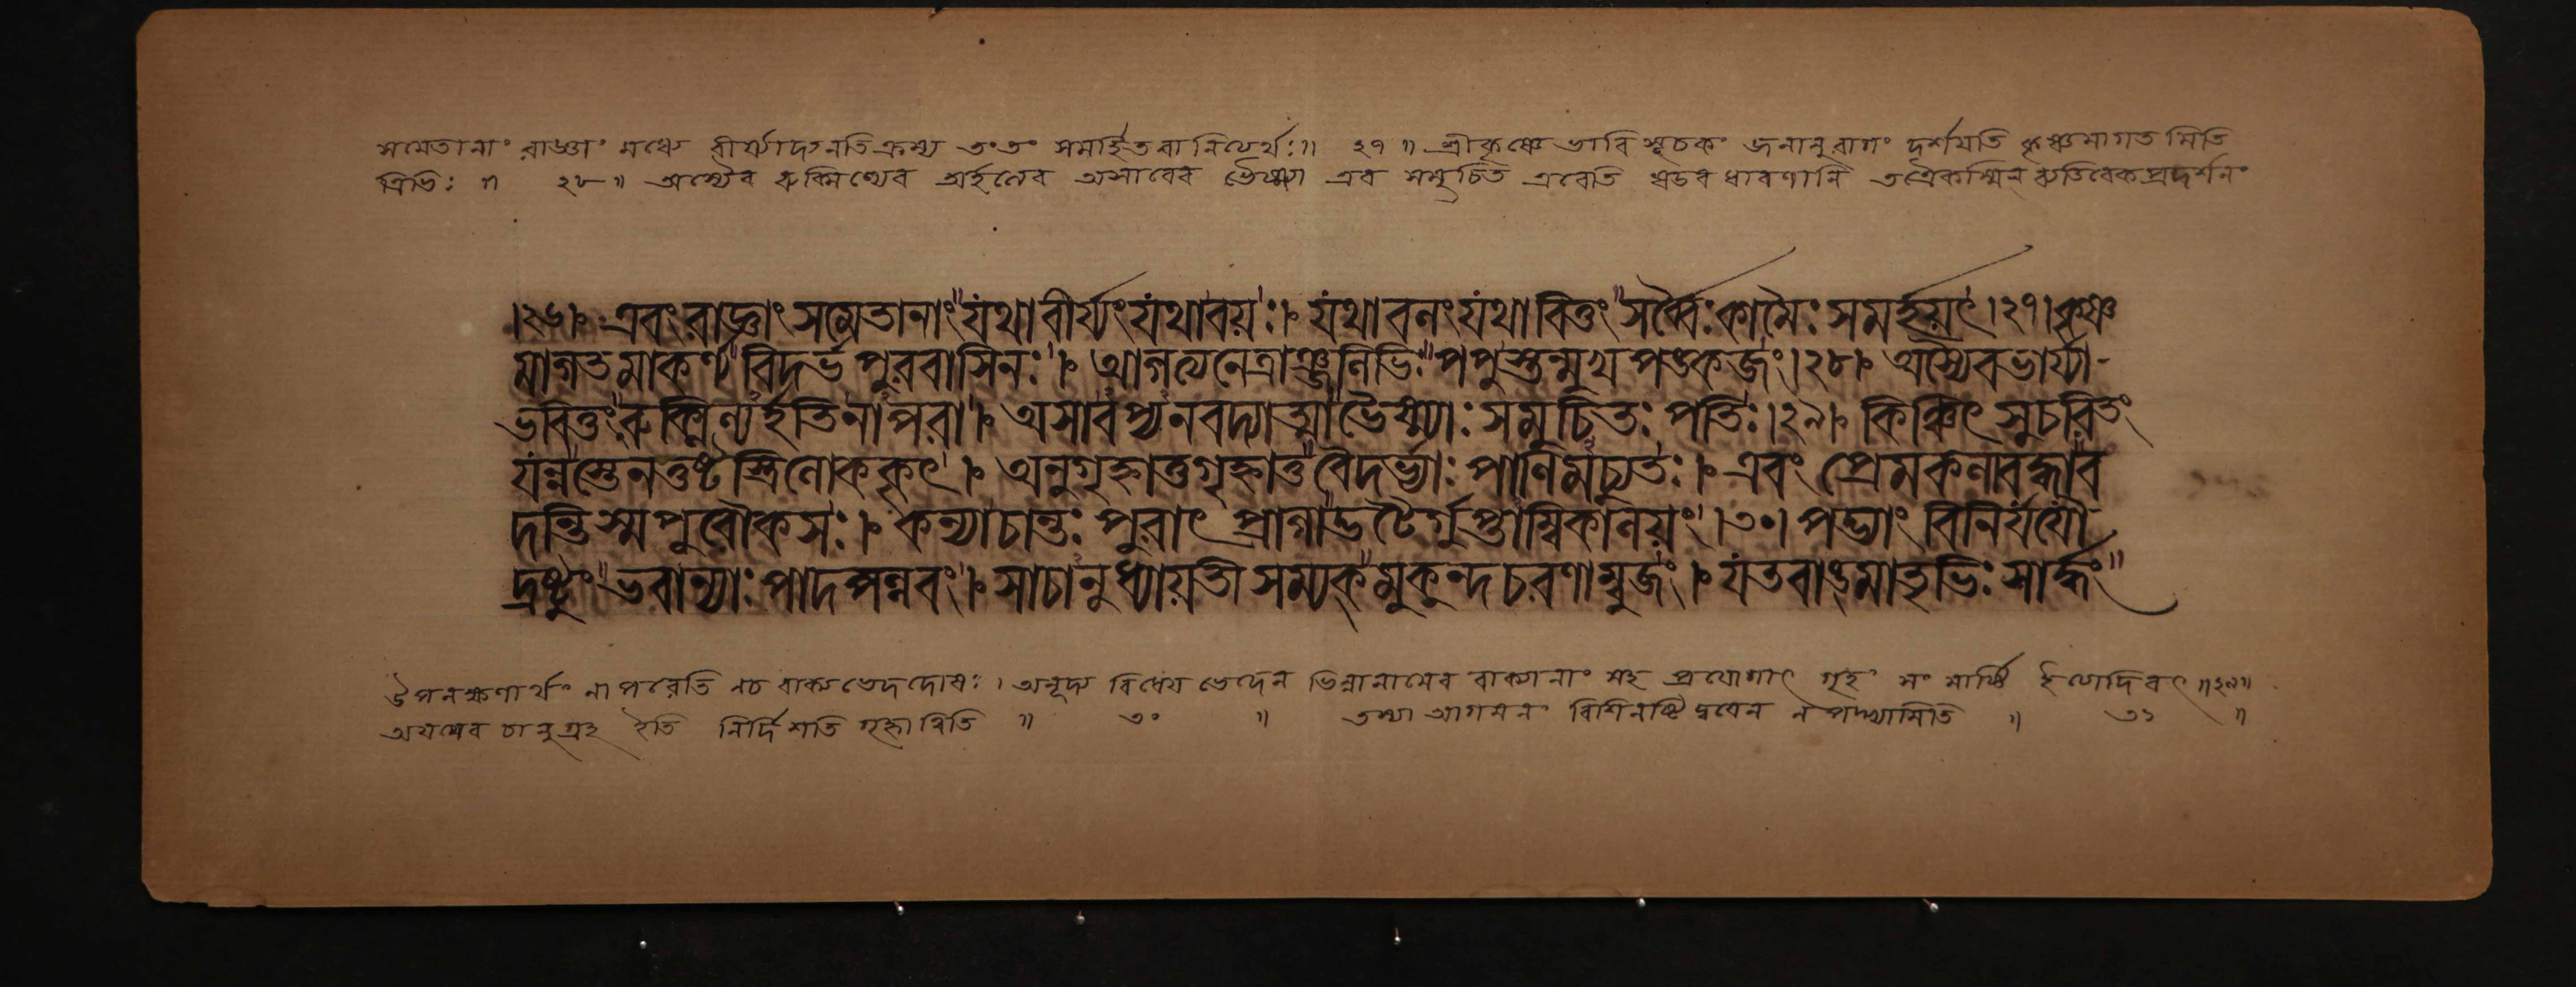 সমেতানাং রাজ্ঞাং মধ্যে বীর্য্যাদ্যনতিক্রম্য তংতং সমর্হিতবানিত্যর্থঃ॥ ২৭ ॥ শ্রীকৃষ্ণে ভাবি সূচকং জনানুরাগং দর্শয়তি কৃষ্ণমাগতমিতি
ত্রিভিঃ ॥ ২৮ ॥ অস্যৈব রুক্মিণ্যেব অর্হত্যেব অসাবেব ভৈষ্ম্যা এব সমুচিত এবেতি ষডবধারণানি তত্রৈকস্মিন্
।২৬। এবং রাজ্ঞাং সমেতানাং যথাবীর্য্যং যথাবয়ঃ। যথাবলং যথাবিত্তং সর্ব্বৈঃ কামৈঃ সমর্হয়ৎ।২৭। কৃষ্ণ
মাগতমাকর্ণ্য বিদর্ভপুরবাসিনঃ। আগত্যনেত্রাঞ্জলিভিঃ পপুস্তন্মুখপঙ্কজং।২৮। অস্যৈবভার্য্যা-
ভবিতুং রুক্মিণ্যর্হতিনাপরা। অসাবপ্যনবদ্যাত্মাভৈষ্ম্যাঃ সমুচিতঃ পতিঃ।২৯। কিঞ্চিৎ সুচরিতং
যন্নস্তেনতুষ্টস্ত্রিলোককৃৎ। অনুগৃহ্নাতুগৃহ্নাতুবৈদর্ভ্যাঃ পাণিমচ্যুতঃ। এবং প্রেমকলাবদ্ধাব
দন্তিস্মপুরৌকসঃ। কন্যাচান্তঃ পুরাৎ প্রাগাদ্ভটৈর্গুপ্তাম্বিকালয়ং।৩০। পদ্ভ্যাং বিনির্যযৌ
দ্রষ্টুং ভবান্যাঃ পাদপল্লবং। সাচানুধ্যায়তী সম্যক্ মুকুন্দচরণাম্বুজং। যতবাঙ্মাতৃভিঃ সার্দ্ধং
উপলক্ষণার্থং নাপরেতি নচ বাক্যভেদদোষঃ। অনূদ্য বিধেয় ভেদেন ভিন্নানামেব বাক্যানাং সহ প্রয়োগাৎ গৃহং সংমার্ষ্টি ইত্যাদিবৎ॥২৯॥
অয়মেব চানুগ্রহ ইতি নির্দিশতি গৃহ্নাত্বিতি ॥ ৩০ ॥ তস্যা আগমনং বিশিনষ্টি পদ্ভ্যামিতি ॥ ৩১ ॥